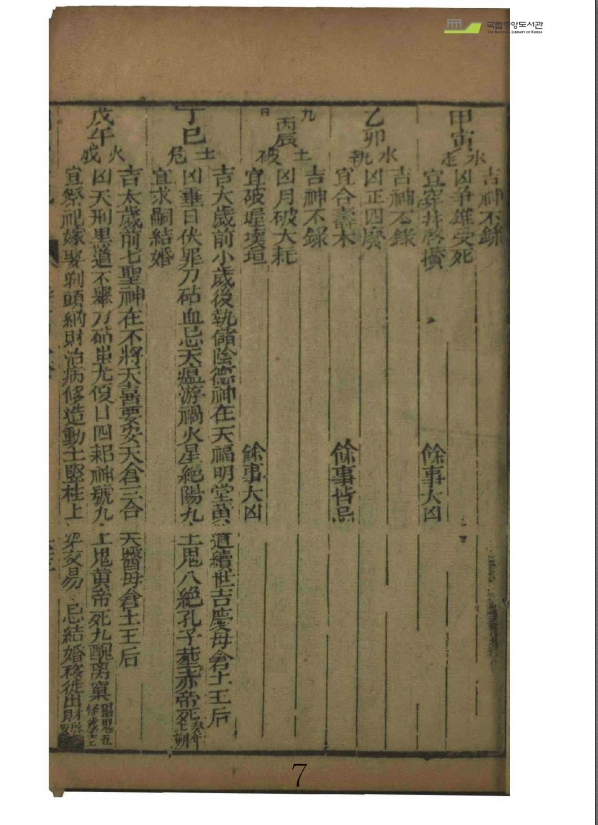 국립중앙도서관
THE NATIONAL LIBRARY OF KOREA
甲寅
水定
吉神不錄
凶爭雄受死
宜穿井啓攢
餘事大凶
乙卯
水執
吉神不錄
凶正四廢
宜合壽木
餘事皆忌
九
日
丙辰
土破
吉神不錄
凶月破大耗
宜破屋壞垣
餘事大凶
丁巳
土危
吉大歲前小歲後執儲陰德神在天福明堂黃道續世吉慶母倉土王后
凶重日伏罪刀砧血忌天瘟游禍火星絕陽九土鬼八絕孔子葬赤帝死
宜求嗣結婚
戊午
火成
吉太歲前七聖神在不將天喜要安天倉三合天醫母倉土王后
凶天刑黑道不舉刀砧蚩尤復日四耗神號九土鬼黃帝死九醜离窠
宜祭祀嫁娶剃頭納財治病修造動土竪柱上交易忌結婚移徙出財
7